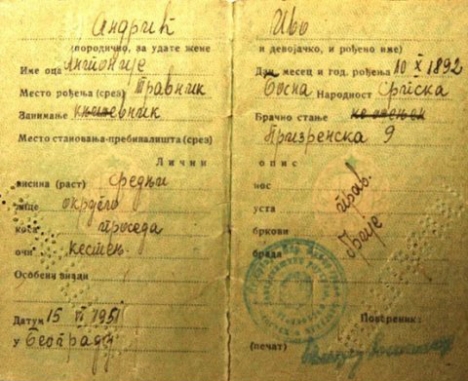 Андрић Иво
(породично, за удате жене и девојачко, и рођено име)
Име оца Антоније Дан, месец и год. рођења 10 X 1892
Место рођења (срез) Травник Босна Народност Српска
Занимање књижевник Брачно стање неожењен
Место становања-пребивалишта (срез) Призренска 9
Лични опис
висина (раст) средњи нос прав.
лице округло уста
коса проседа бркови брије
очи кестењ. брада
Особени знаци
Датум 15 VI 1951
у Београду Повереник
(печат)